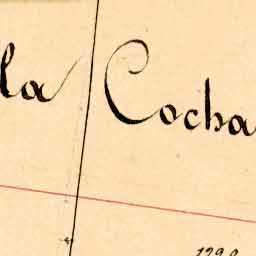 la Cocha